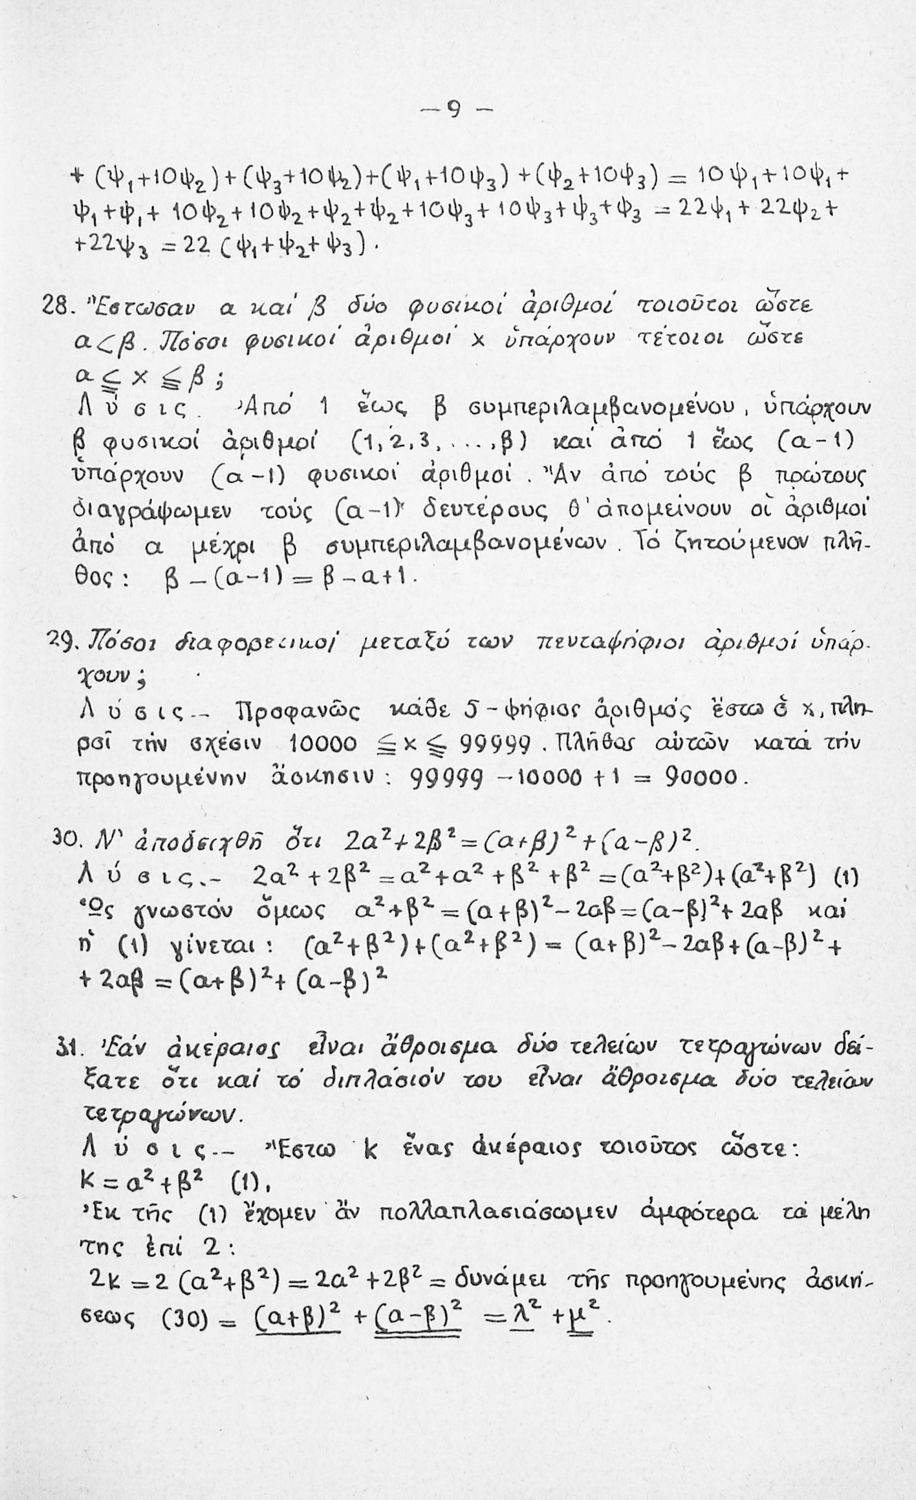 — 9 —
+ (ψ₁+10ψ₂)+(ψ₃+10ψ₂)+(ψ₁+10ψ₃)+(ψ₂+10ψ₃) = 10ψ₁+10ψ₁+
ψ₁+ψ₁+ 10ψ₂+10ψ₂+ψ₂+ψ₂+10ψ₃+10ψ₃+ψ₃+ψ₃ = 22ψ₁+22ψ₂+
+22ψ₃ = 22 (ψ₁+ψ₂+ψ₃).
28. Ἔστωσαν α καί β δύο φυσικοί ἀριθμοί τοιοῦτοι ὥστε
α<β. Πόσοι φυσικοί ἀριθμοί x ὑπάρχουν τέτοιοι ὥστε
α ≦ x ≦ β ;
Λ ύ σ ι ς. Ἀπό 1 ἕως β συμπεριλαμβανομένου, ὑπάρχουν
β φυσικοί ἀριθμοί (1,2,3,...,β) καί ἀπό 1 ἕως (α-1)
ὑπάρχουν (α-1) φυσικοί ἀριθμοί. Ἄν ἀπό τούς β πρώτους
διαγράψωμεν τούς (α-1) δευτέρους θ' ἀπομείνουν οἱ ἀριθμοί
ἀπό α μέχρι β συμπεριλαμβανομένων. Τό ζητούμενον πλῆ-
θος: β – (α-1) = β-α+1.
29. Πόσοι διαφορετικοί μεταξύ των πενταψήφιοι ἀριθμοί ὑπάρ-
χουν;
Λ ύ σ ι ς.– Προφανῶς κάθε 5-ψήφιος ἀριθμός ἔστω ὁ x, πλη-
ροῖ τήν σχέσιν 10000 ≦ x ≦ 99999. Πλῆθος αὐτῶν κατά τήν
προηγουμένην ἄσκησιν: 99999 – 10000 + 1 = 90000.
30. Ν' ἀποδειχθῆ ὅτι 2α²+2β²=(α+β)²+(α-β)².
Λ ύ σ ι ς.– 2α²+2β²=α²+α²+β²+β²=(α²+β²)+(α²+β²) (1)
Ὡς γνωστόν ὅμως α²+β²=(α+β)²-2αβ=(α-β)²+2αβ καί
ἡ (1) γίνεται: (α²+β²)+(α²+β²) = (α+β)²-2αβ+(α-β)²+
+2αβ = (α+β)²+(α-β)²
31. Ἐάν ἀκέραιος εἶναι ἄθροισμα δύο τελείων τετραγώνων δεί-
ξατε ὅτι καί τό διπλάσιόν του εἶναι ἄθροισμα δύο τελείων
τετραγώνων.
Λ ύ σ ι ς.– Ἔστω k ἕνας ἀκέραιος τοιοῦτος ὥστε:
k = α²+β² (1),
Ἐκ τῆς (1) ἔχομεν ἄν πολλαπλασιάσωμεν ἀμφότερα τά μέλη
της ἐπί 2:
2k = 2 (α²+β²) = 2α²+2β² = δυνάμει τῆς προηγουμένης ἀσκή-
σεως (30) = (α+β)² + (α-β)² = λ² + μ².